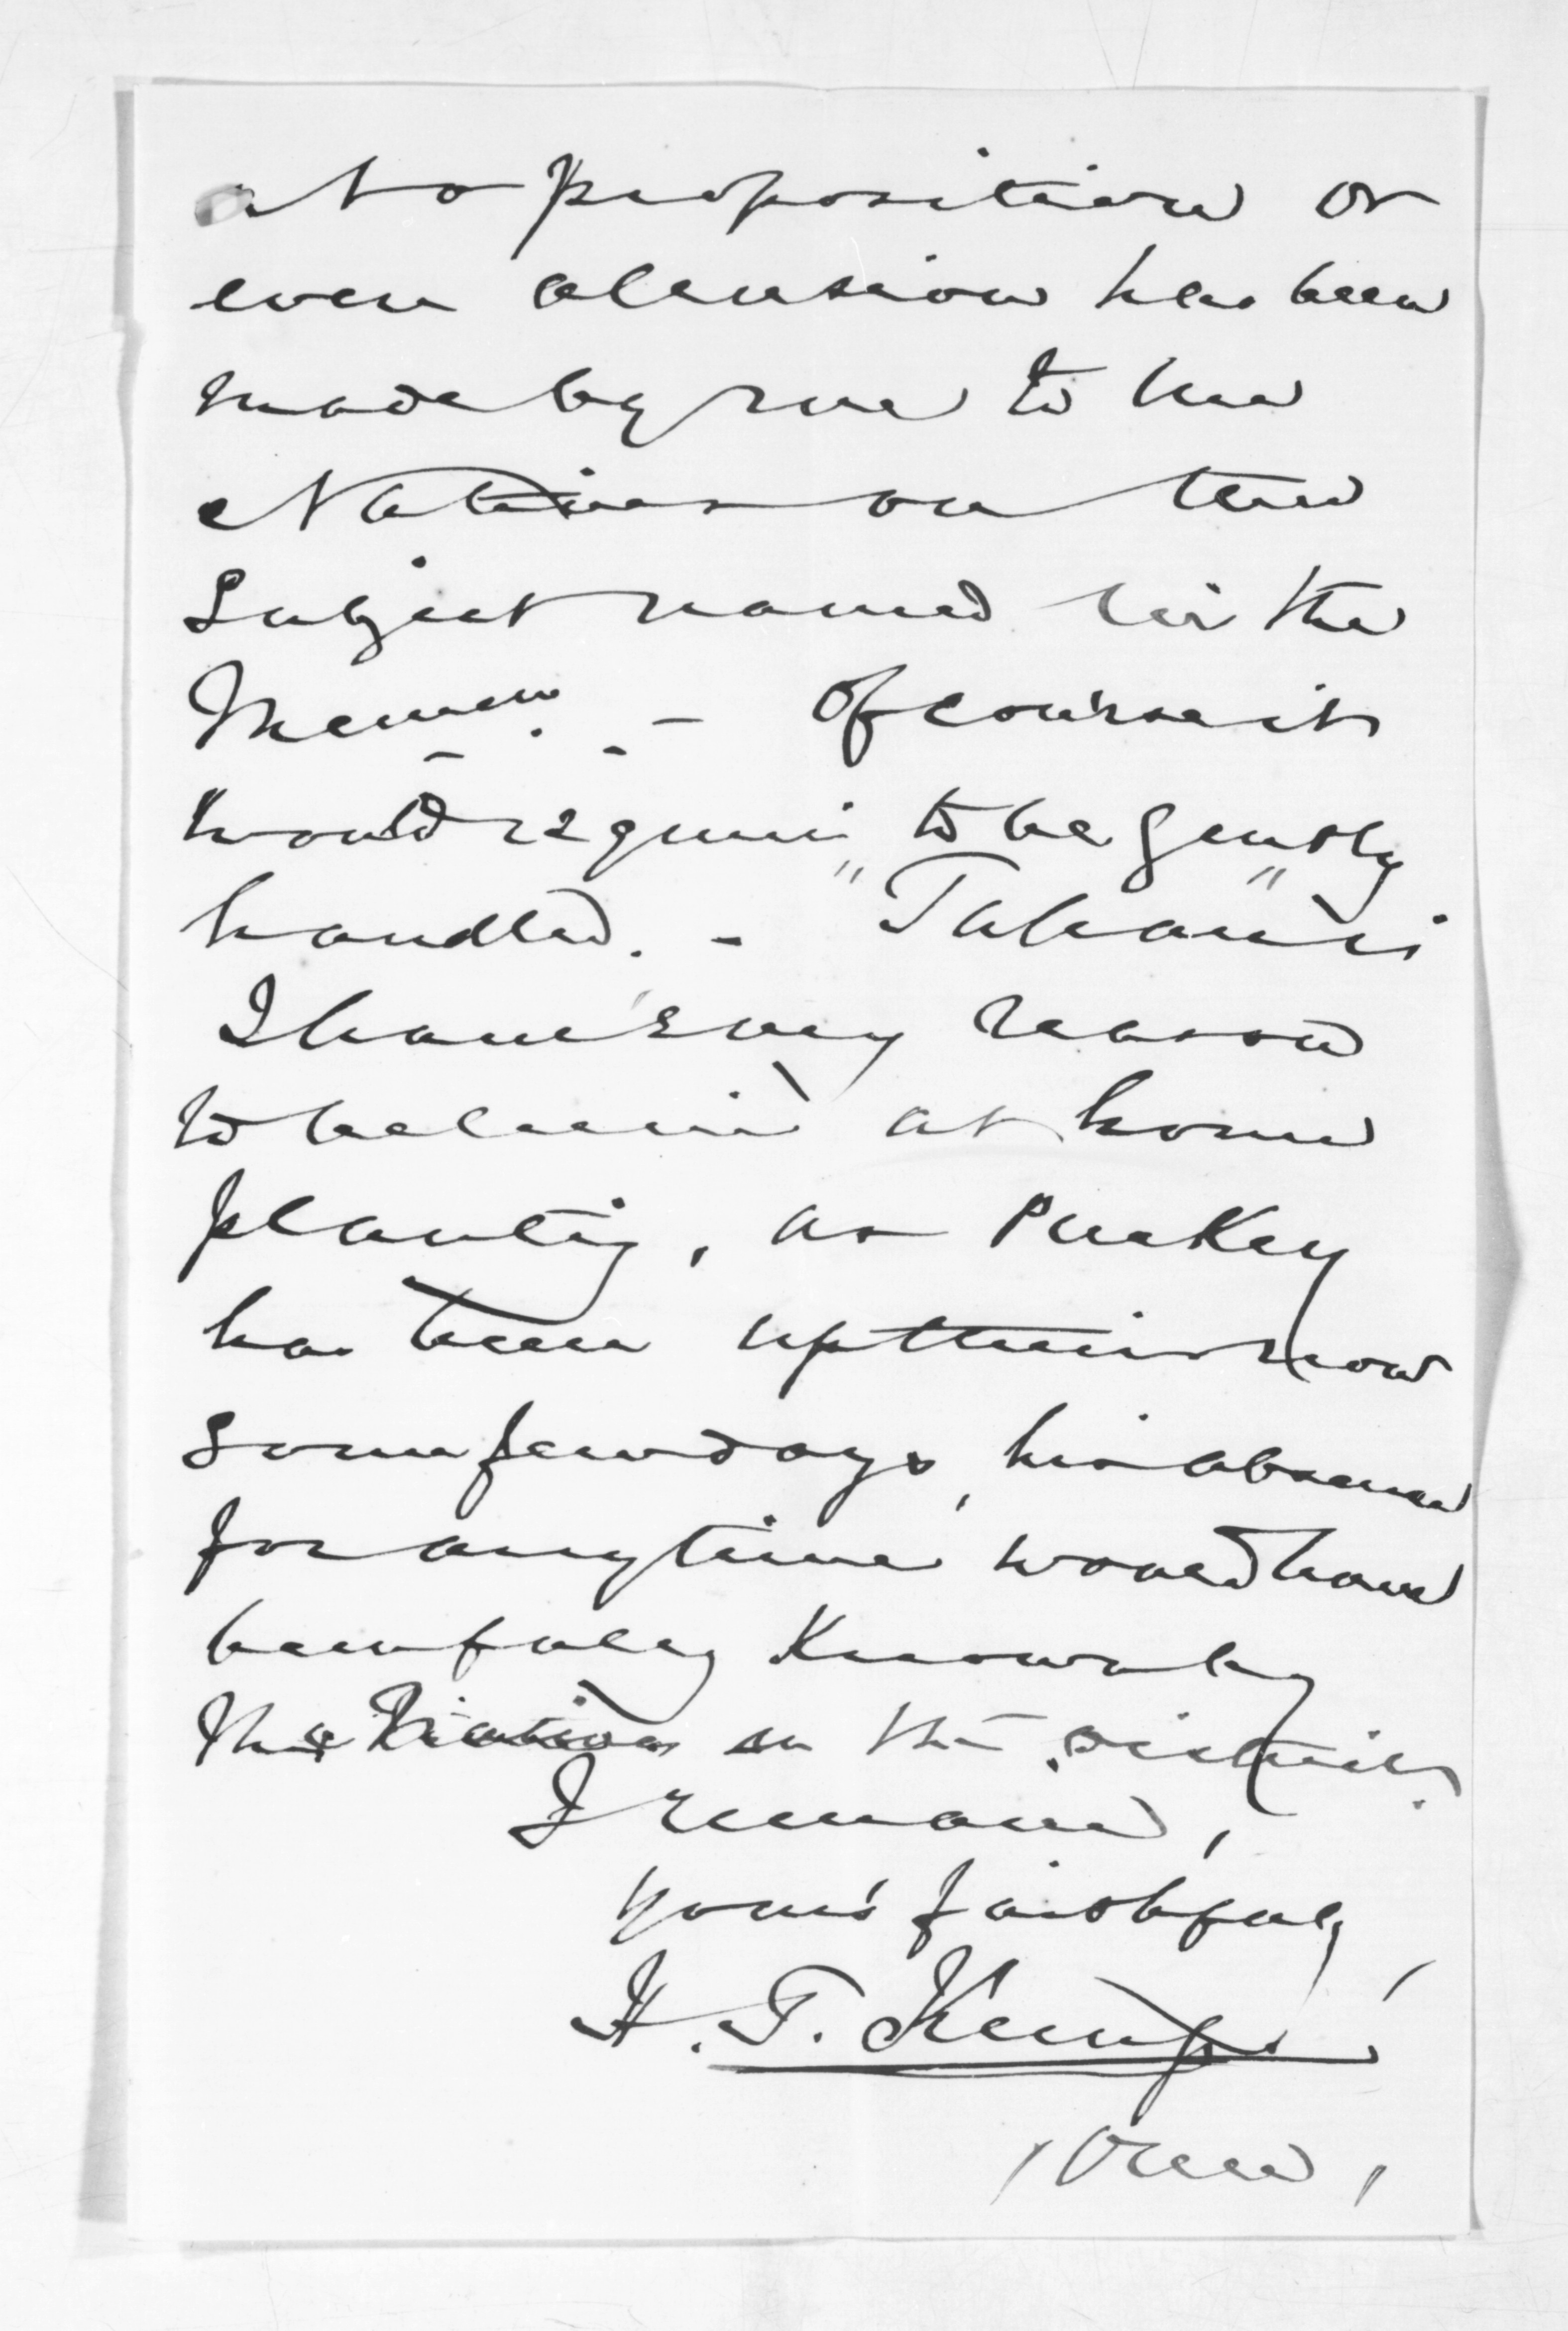 No proposition or
even alusion has been
made by me to the
Natives on the
Subject named in the
Memm. - Of course it
would require to be gently
handled. - "Tahanui"
I have every reason
to believe is at home
planting, as Puckey
has been up there now
some few days, his absence
for any time would have
been fully known by
the Natives in the district.
I remain,
yours faithfully
H. T. Kemp
(Over)